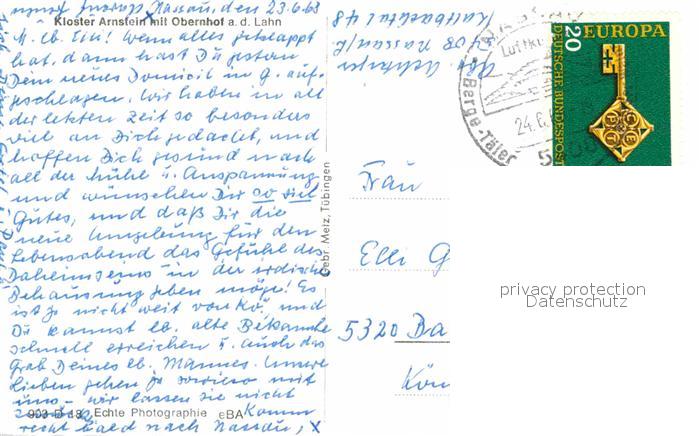 Nassau, den 23.6.68
Kloster Arnstein mit Obernhof a. d. Lahn
M. lb. Elli! Wenn alles geklappt
hat, dann hast Du gestern
Dein neues Domicil in G. auf-
geschlagen. Wir haben in all
der letzten Zeit so besonders
viel an Dich gedacht, und
hoffen Dich gesund nach
all der Mühe u. Anspannung
und wünschen Dir so viel
Gutes, und daß Dir die
neue Umgebung für den
Lebensabend das Gefühl des
Daheimseins in der irdischen
Behausung geben möge! Es
ist ja nicht weit von Kö. und
Du kannst lb. alte Bekannte
schnell erreichen u. auch das
Grab Deines lb. Mannes. Unsere
Lieben gehen ja sowieso mit
uns - wir lassen sie nicht
Komm
recht bald nach Nassau, X
903 D 18 Echte Photographie eBA
Gebr. Metz, Tübingen
5408 Nassau/L.
Kaltbachtal 48
NASSAU
Luftku
Berge-Täler
24.6.
5408
20
EUROPA
DEUTSCHE BUNDESPOST
CEPT
Frau
Elli G
5320 Ba
Kön
privacy protection
Datenschutz